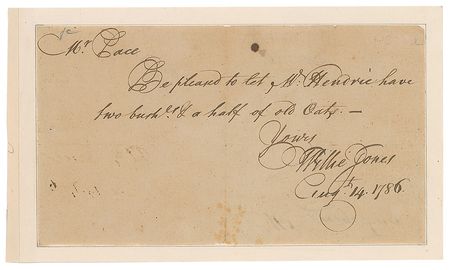 Mr. Pace
Be pleased to let Mr. Hendric have
two bushls. & a half of old Oats. —
Yours
Willie Jones
Augt. 14. 1786